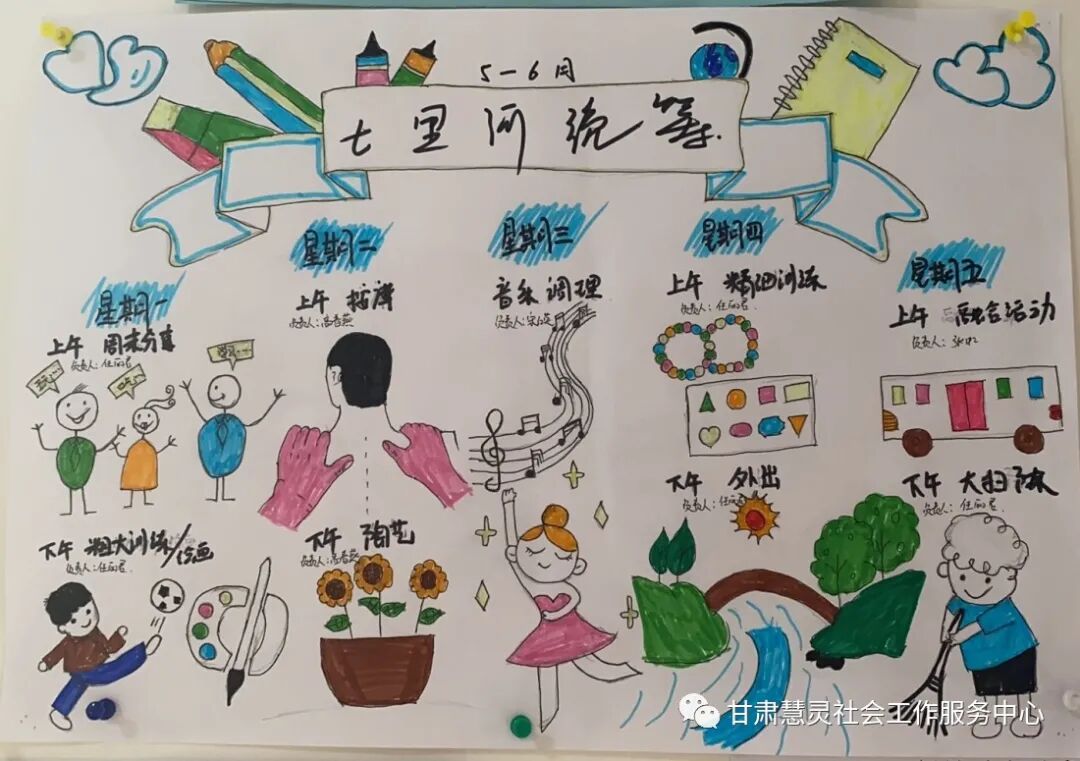 5-6月
七里河统筹
星期一
上午 周末分享
负责人:任丽君
下午 粗大训练/绘画
负责人:任丽君
星期二
上午 按摩
负责人:高春燕
下午 陶艺
负责人:高春燕
星期三
音乐调理
负责人:
星期四
上午 精细训练
负责人:任丽君
下午 外出
负责人:任丽君
星期五
上午 融合活动
负责人:
下午 大扫除
负责人:任丽君
甘肃慧灵社会工作服务中心